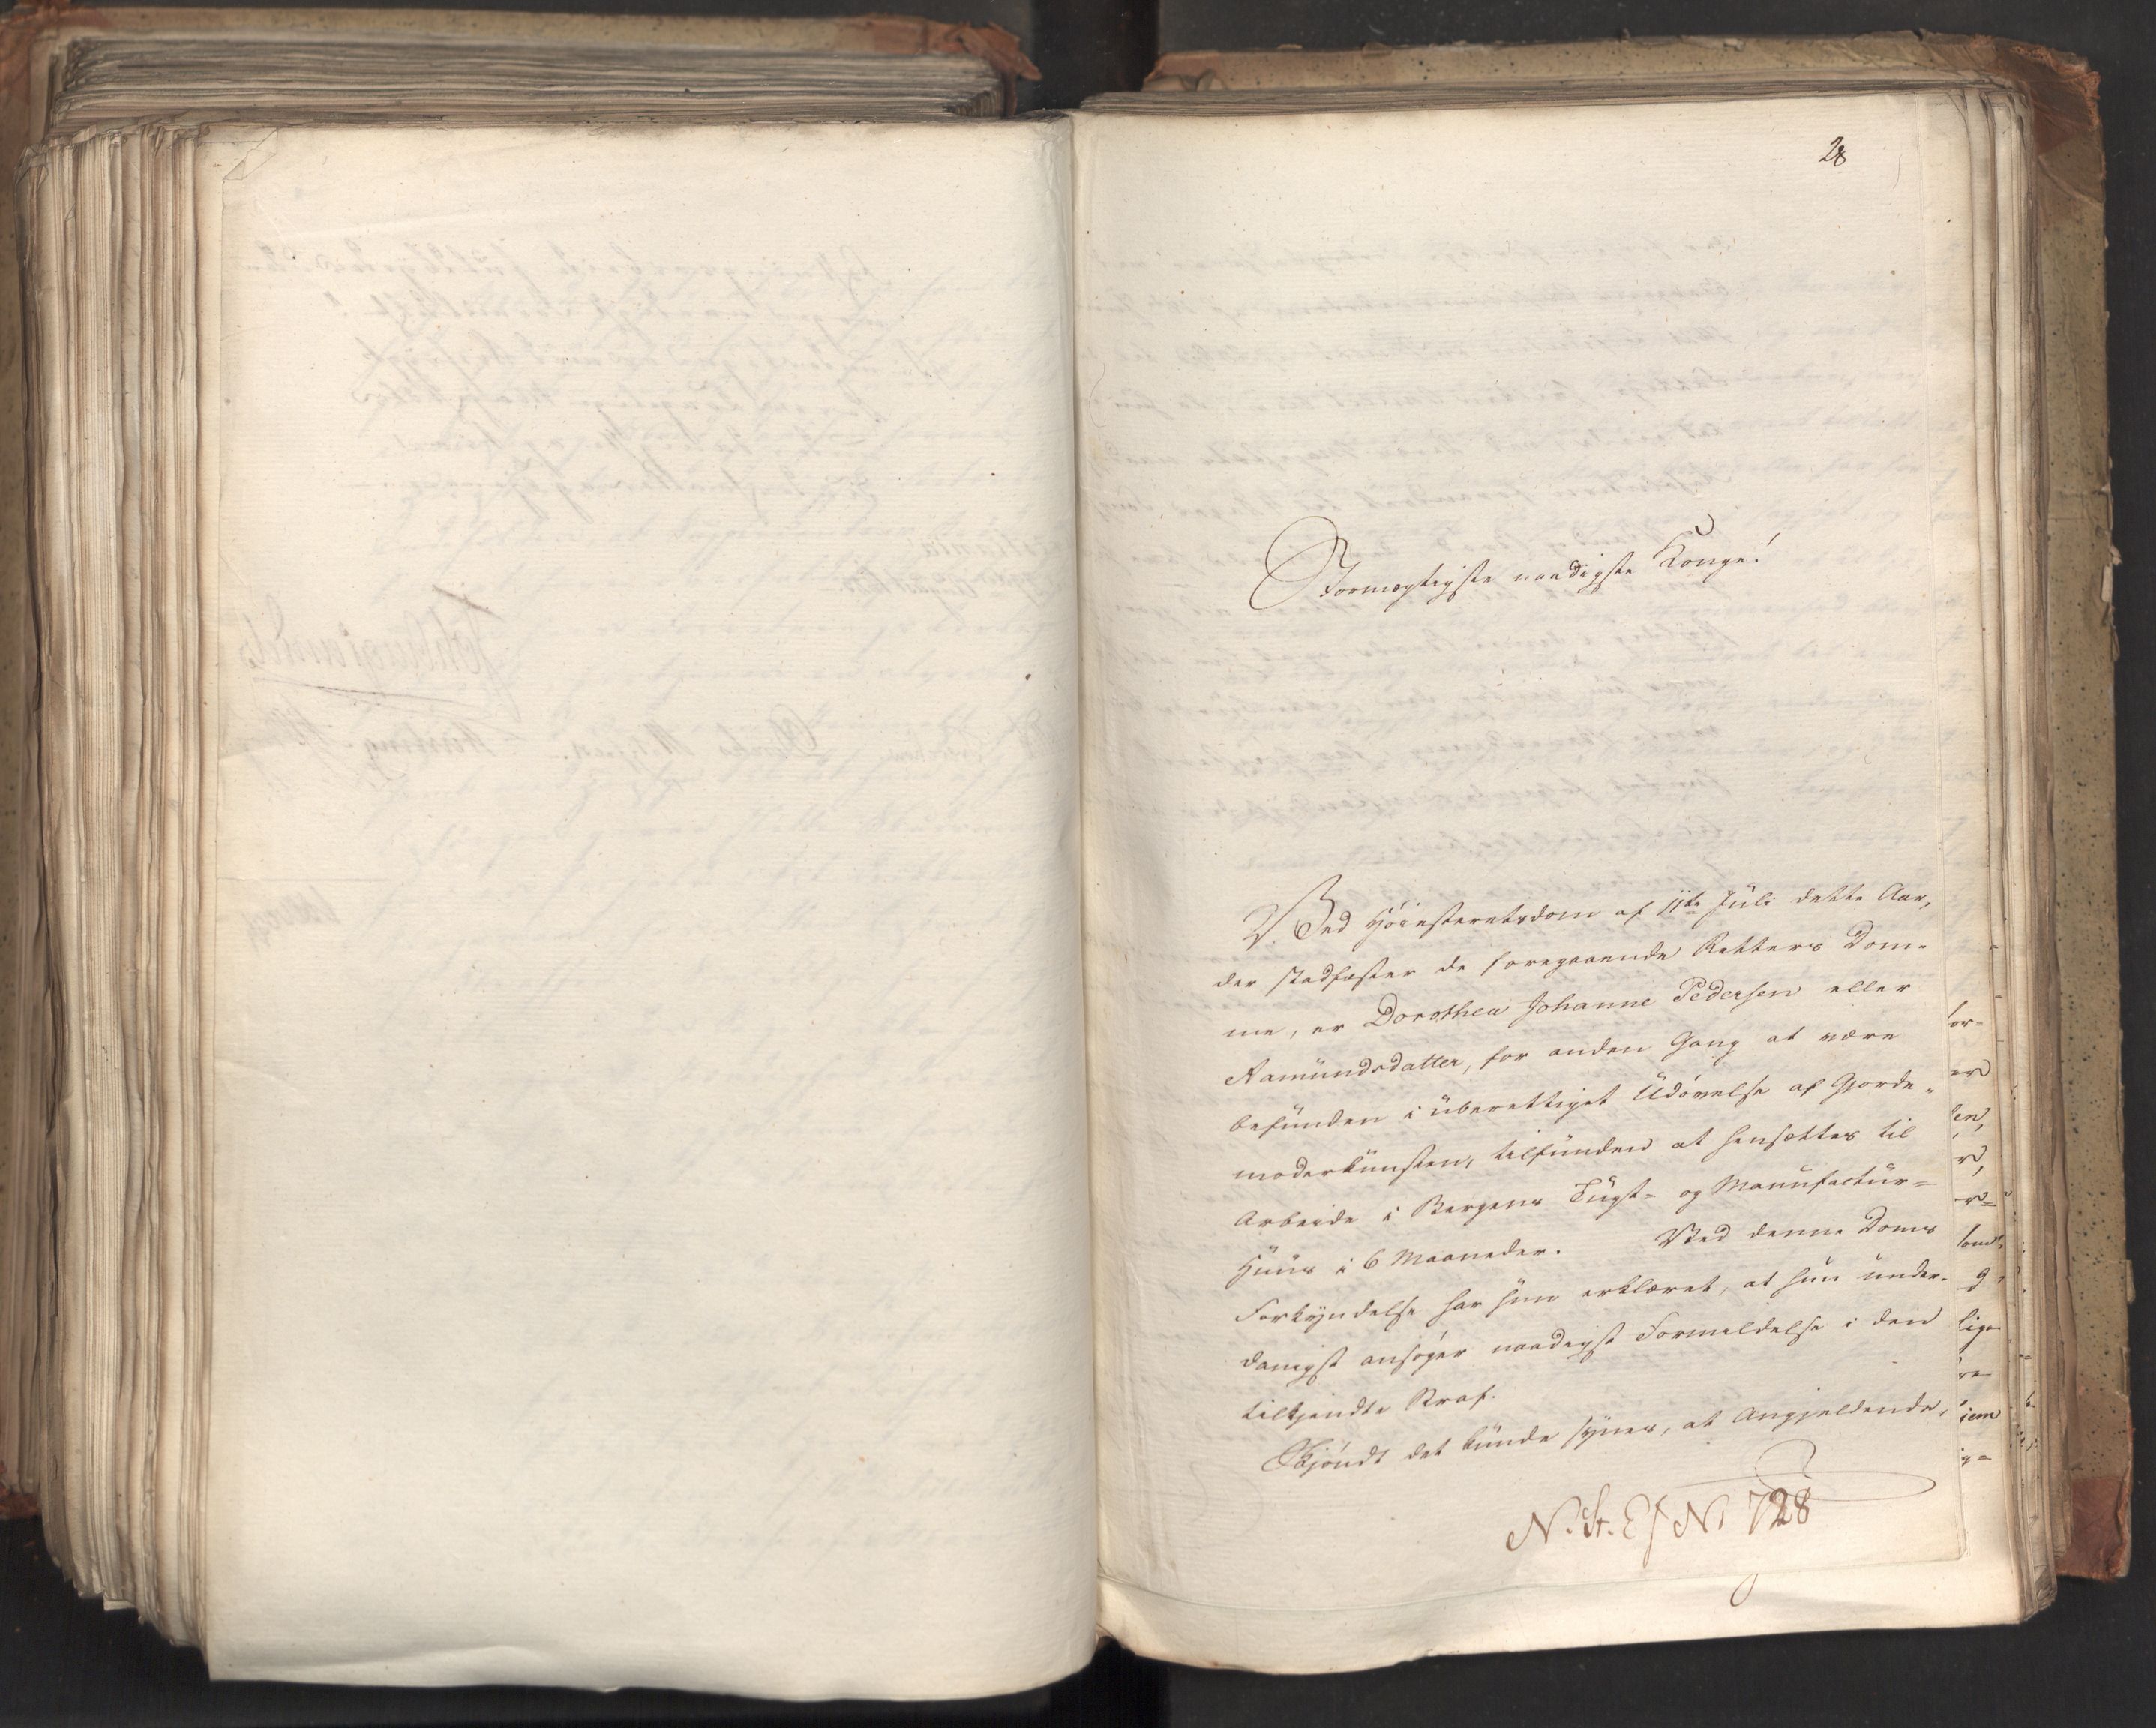 28
Stormægtigste naadigste Konge!
Ved Höiesteretsdom af 11te Juli dette Aar,
der stadfæster de foregaaende Retters Dom-
me, er Dorothea Johanne Pedersen eller
Aamundsdatter, for anden Gang at være
befunden i uberettiget Udövelse af Gjorde-
moderkunsten, tilfunden at hensættes til
Arbeide i Bergens Tugt- og Manufactur-
Huus i 6 Maaneder. Ved denne Doms
Forkyndelse har hun erklæret, at hun under-
danigst ansöger naadigst Formildelse i den
tilkjendte Straf.
Skjöndt det kunde synes, at Angjeldende,
N. St. Ex No 728